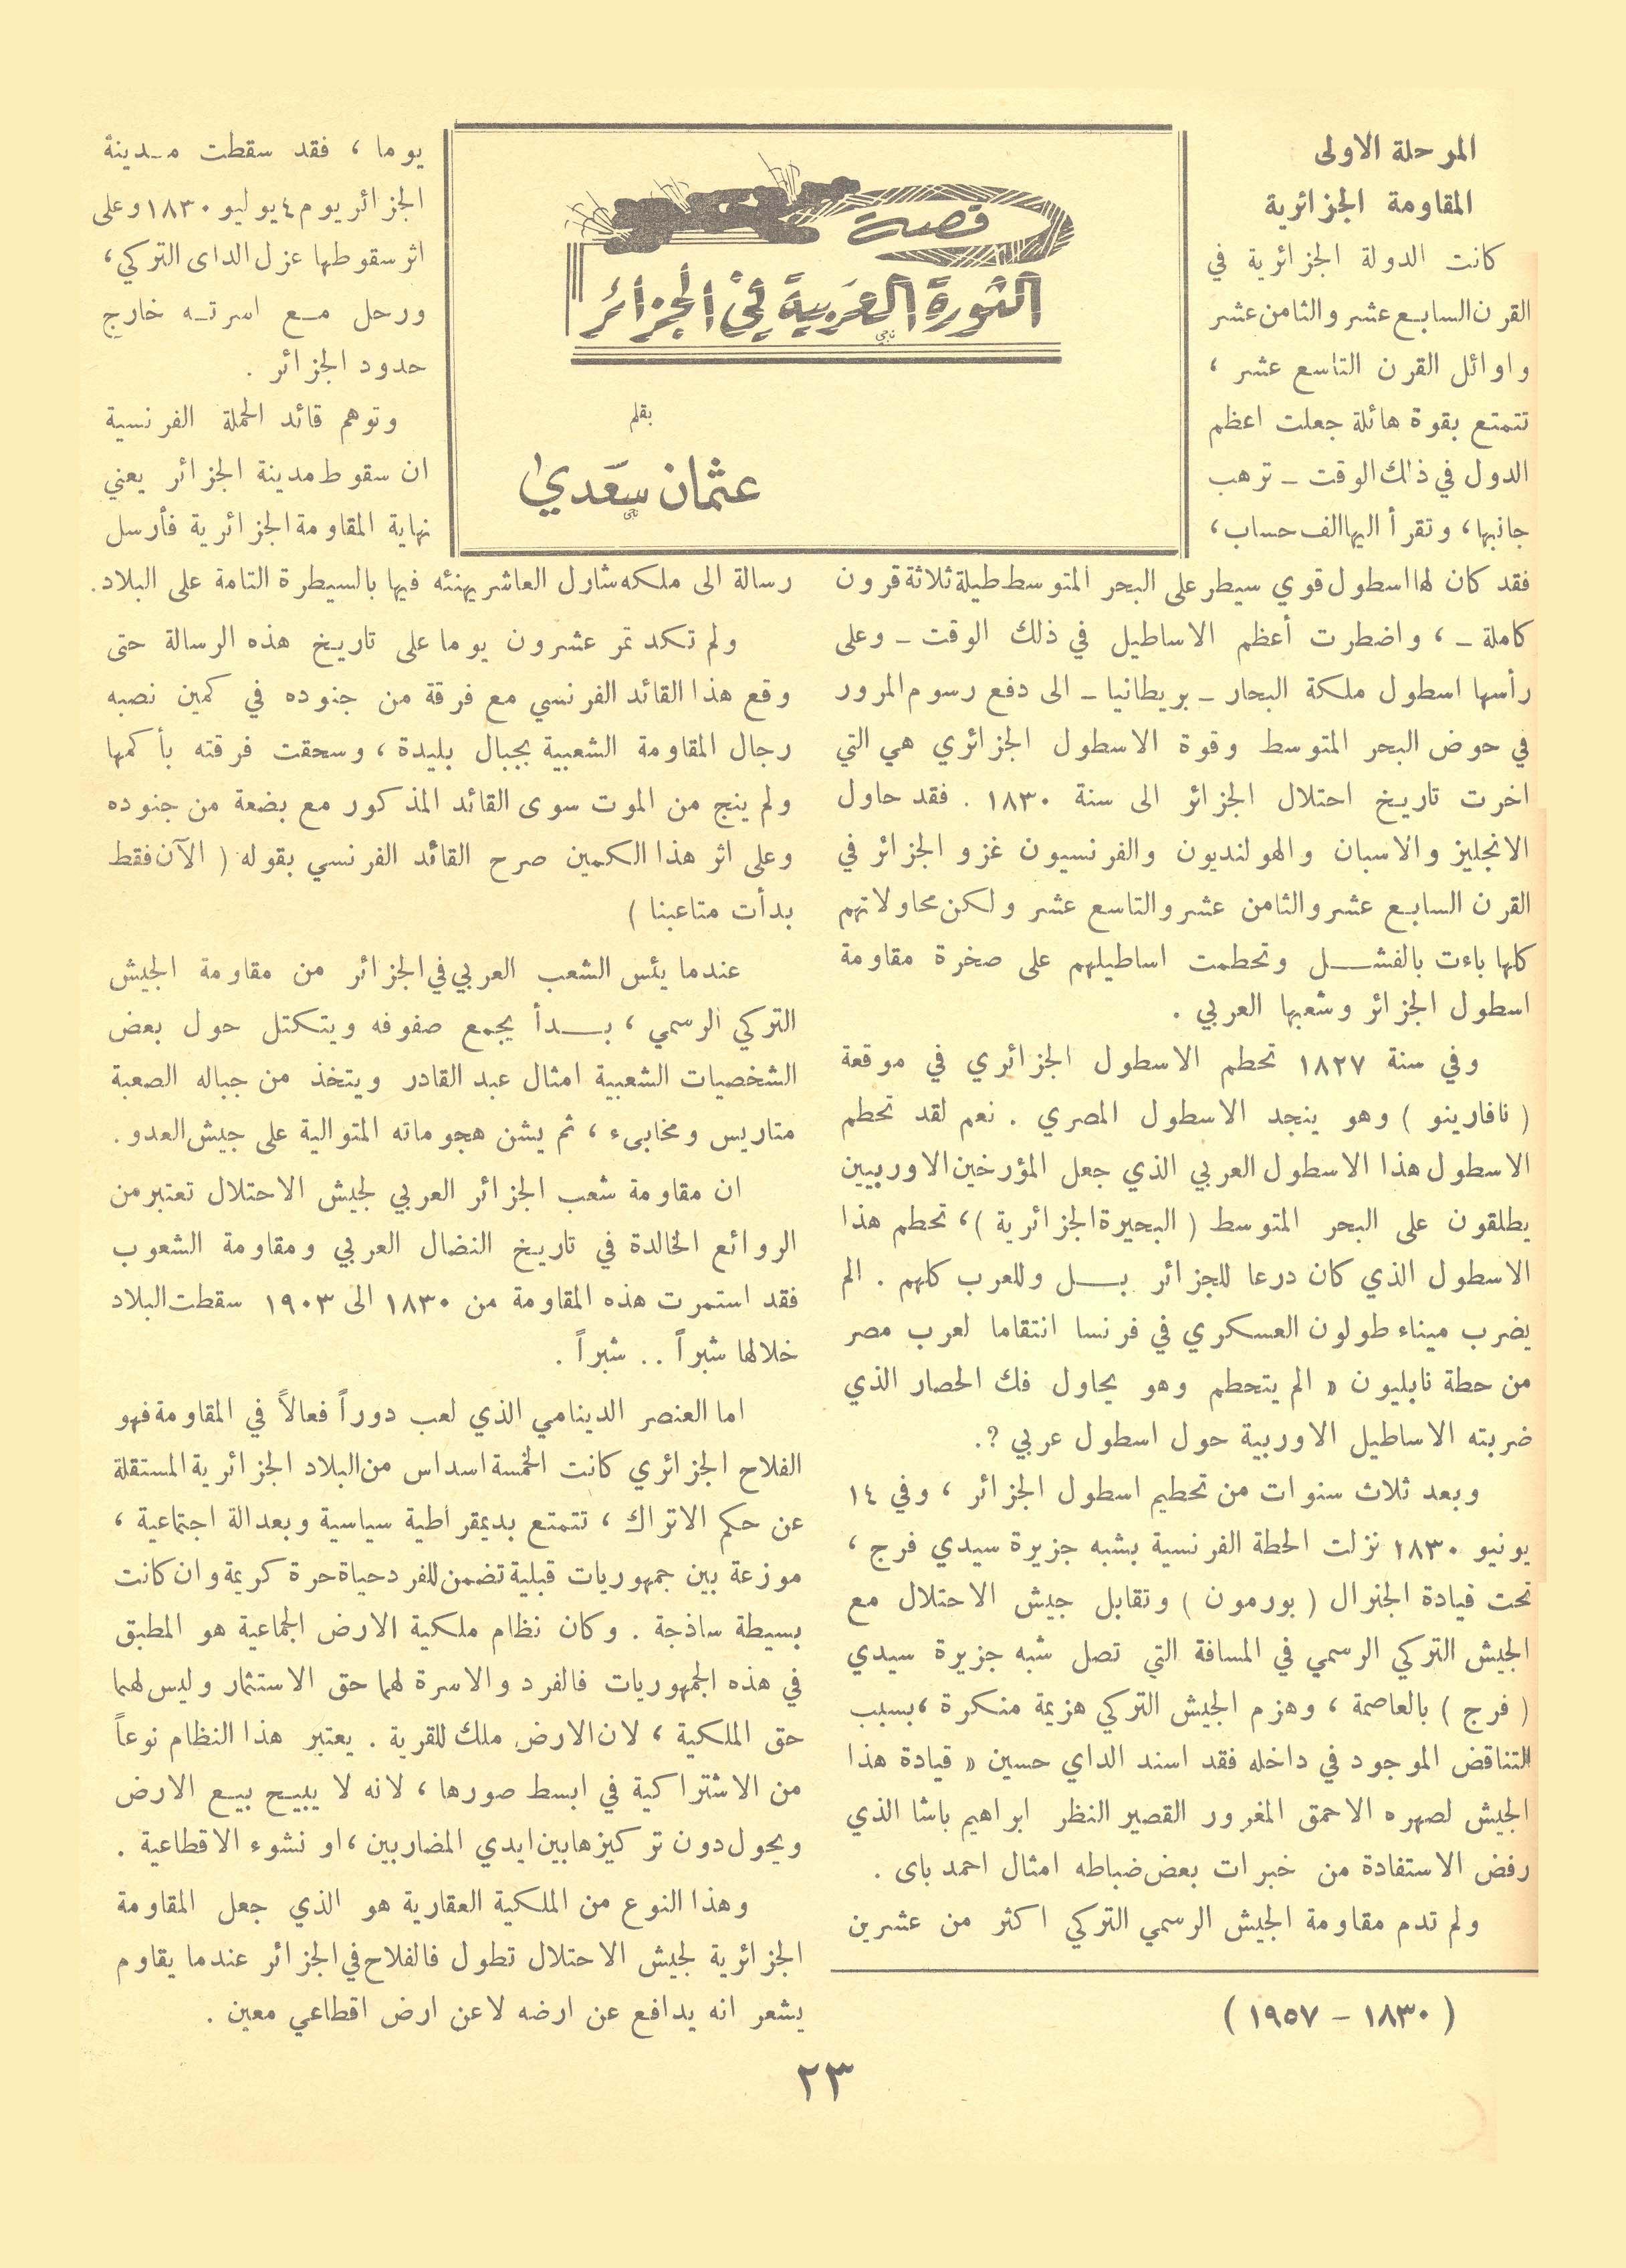 قصة
الثورة العربية في الجزائر
بقلم
عثمان سعدي
المرحلة الاولى
المقاومة الجزائرية
كانت الدولة الجزائرية في
القرن السابع عشر والثامن عشر
واوائل القرن التاسع عشر ،
تتمتع بقوة هائلة جعلت اعظم
الدول في ذلك الوقت ـ ترهب
جانبها ، وتقرأ اليها الف حساب ،
فقد كان لها اسطول قوي سيطر على البحر المتوسط طيلة ثلاثة قرون
كاملة ـ ، واضطرت أعظم الاساطيل في ذلك الوقت ـ وعلى
رأسها اسطول ملكة البحار ـ بريطانيا ـ الى دفع رسوم المرور
في حوض البحر المتوسط وقوة الاسطول الجزائري هي التي
اخرت تاريخ احتلال الجزائر الى سنة ١٨٣٠ . فقد حاول
الانجليز والاسبان والهولنديون والفرنسيون غزو الجزائر في
القرن السابع عشر والثامن عشر والتاسع عشر ولكن محاولاتهم
كلها باءت بالفشل وتحطمت اساطيلهم على صخرة مقاومة
اسطول الجزائر وشعبها العربي .
وفي سنة ١٨٢٧ تحطم الاسطول الجزائري في موقعة
( نافارينو ) وهو ينجد الاسطول المصري . نعم لقد تحطم
الاسطول هذا الاسطول العربي الذي جعل المؤرخين الاوربيين
يطلقون على البحر المتوسط ( البحيرة الجزائرية ) ، تحطم هذا
الاسطول الذي كان درعا للجزائر بل وللعرب كلهم . الم
يضرب ميناء طولون العسكري في فرنسا انتقاما لعرب مصر
من حطة نابليون « الم يتحطم وهو يحاول فك الحصار الذي
ضربته الاساطيل الاوربية حول اسطول عربي ؟.
وبعد ثلاث سنوات من تحطيم اسطول الجزائر ، وفي ١٤
يونيو ١٨٣٠ نزلت الحطة الفرنسية بشبه جزيرة سيدي فرج ،
تحت قيادة الجنرال ( بورمون ) وتقابل جيش الاحتلال مع
الجيش التركي الرسمي في المسافة التي تصل شبه جزيرة سيدي
( فرج ) بالعاصمة ، وهزم الجيش التركي هزيمة منكرة ، بسبب
التناقض الموجود في داخله فقد اسند الداي حسين « قيادة هذا
الجيش لصهره الاحمق المغرور القصير النظر ابراهيم باشا الذي
رفض الاستفادة من خبرات بعض ضباطه امثال احمد باى .
ولم تدم مقاومة الجيش الرسمي التركي اكثر من عشرين
( ١٨٣٠ – ١٩٥٧ )
يوما ، فقد سقطت مدينة
الجزائر يوم ٤ يوليو ١٨٣٠ وعلى
اثر سقوطها عزل الداى التركي ،
ورحل مع اسرته خارج
حدود الجزائر .
وتوهم قائد الحملة الفرنسية
ان سقوط مدينة الجزائر يعني
نهاية المقاومة الجزائرية فأرسل
رسالة الى ملكه شارل العاشر يهنئه فيها بالسيطرة التامة على البلاد .
ولم تكد تمر عشرون يوما على تاريخ هذه الرسالة حتى
وقع هذا القائد الفرنسي مع فرقة من جنوده في كمين نصبه
رجال المقاومة الشعبية بجبال بليدة ، وسحقت فرقته بأكمها
ولم ينج من الموت سوى القائد المذكور مع بضعة من جنوده
وعلى اثر هذا الكمين صرح القائد الفرنسي بقوله ( الآن فقط
بدأت متاعبنا )
عندما يئس الشعب العربي في الجزائر من مقاومة الجيش
التركي الرسمي ، بدأ يجمع صفوفه ويتكتل حول بعض
الشخصيات الشعبية امثال عبد القادر ويتخذ من جباله الصعبة
متاريس ومخابىء ، ثم يشن هجوماته المتوالية على جيش العدو .
ان مقاومة شعب الجزائر العربي لجيش الاحتلال تعتبر من
الروائع الخالدة في تاريخ النضال العربي ومقاومة الشعوب
فقد استمرت هذه المقاومة من ١٨٣٠ الى ١٩٠٣ سقطت البلاد
خلالها شبراً . . شبراً .
اما العنصر الدينامي الذي لعب دوراً فعالاً في المقاومة فهو
الفلاح الجزائري كانت الخمسة اسداس من البلاد الجزائرية المستقلة
عن حكم الاتراك ، تتمتع بديمقراطية سياسية وبعدالة اجتماعية ،
موزعة بين جمهوريات قبلية تضمن للفرد حياة حرة كريمة وان كانت
بسيطة ساذجة . وكان نظام ملكية الارض الجماعية هو المطبق
في هذه الجمهوريات فالفرد والاسرة لهما حق الاستثمار وليس لهما
حق الملكية ، لان الارض ملك للقرية . يعتبر هذا النظام نوعاً
من الاشتراكية في ابسط صورها ، لانه لا يبيح بيع الارض
ويحول دون تركيزها بين ايدي المضاربين ، او نشوء الاقطاعية .
وهذا النوع من الملكية العقارية هو الذي جعل المقاومة
الجزائرية لجيش الاحتلال تطول فالفلاح في الجزائر عندما يقاوم
يشعر انه يدافع عن ارضه لا عن ارض اقطاعي معين .
٢٣